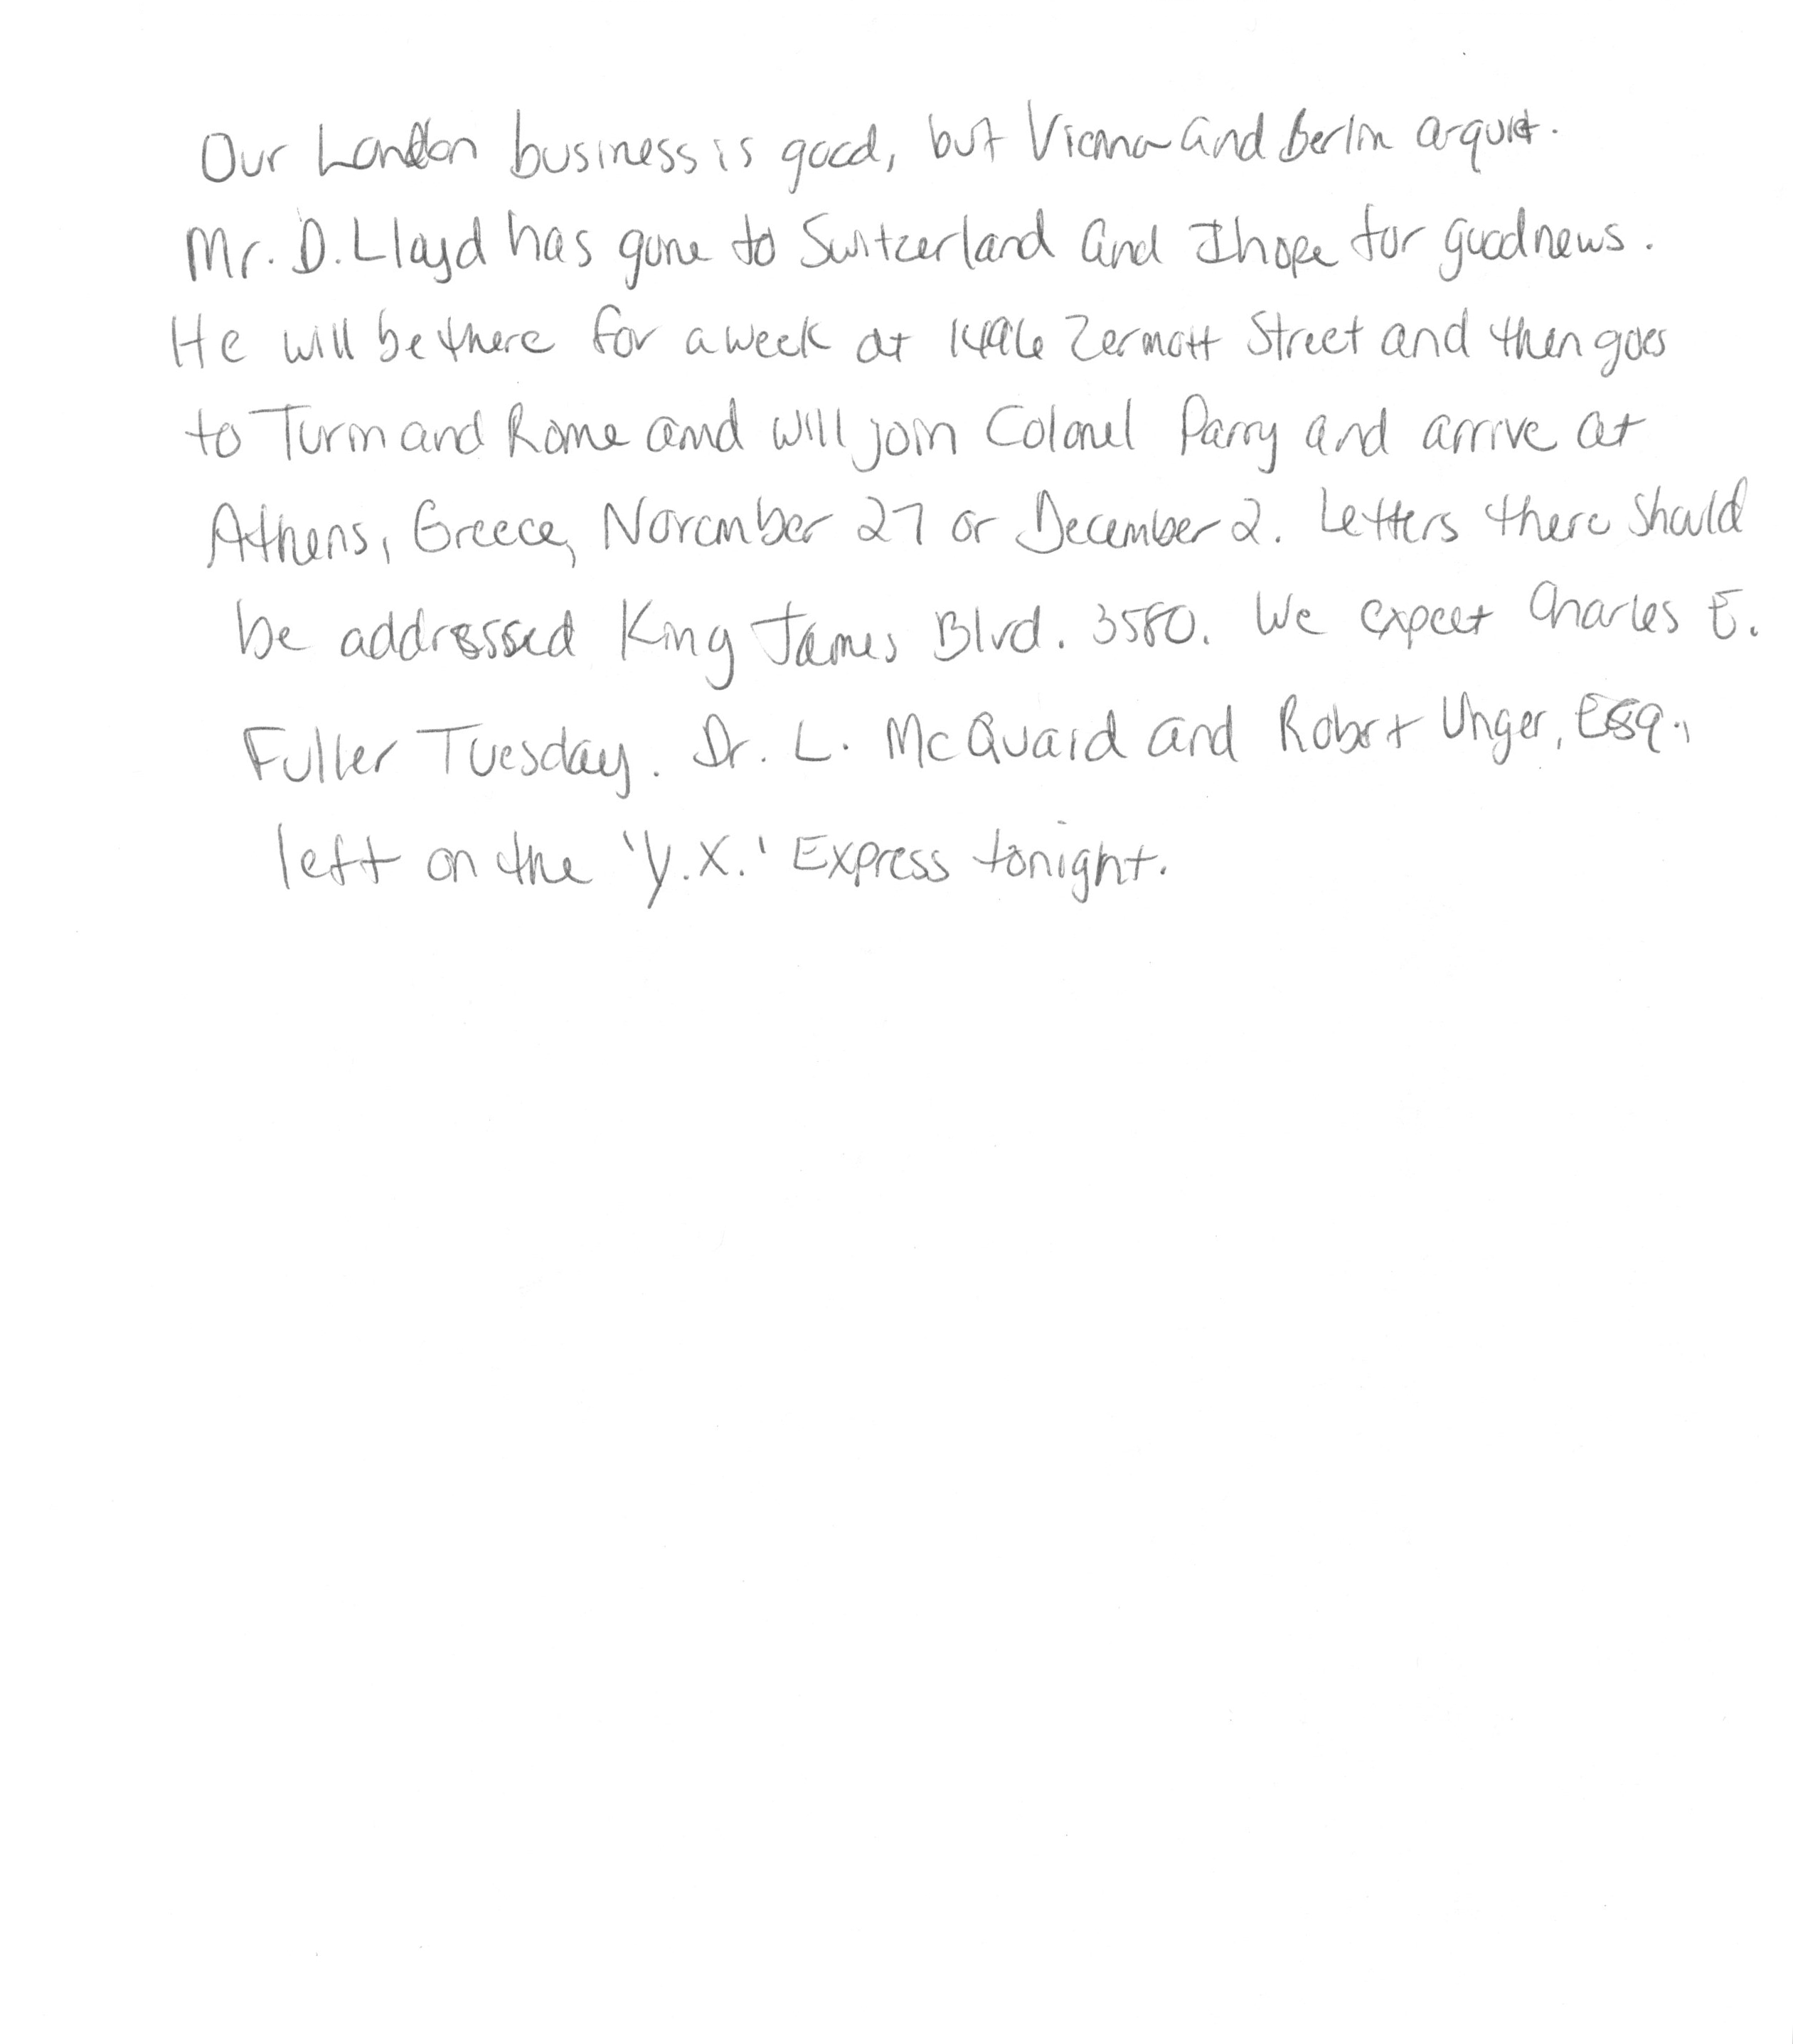 Our London business is good, but Vienna and Berlin are quiet.
Mr. D. Lloyd has gone to Switzerland and I hope for good news.
He will be there for a week at 1496 Zermott Street and then goes
to Turin and Rome and will join Colonel Parry and arrive at
Athens, Greece, November 27 or December 2. Letters there should
be addressed King James Blvd. 3580. We expect Charles E.
Fuller Tuesday. Dr. L. McQuaid and Robert Unger, Esq.,
left on the 'Y.X.' Express tonight.